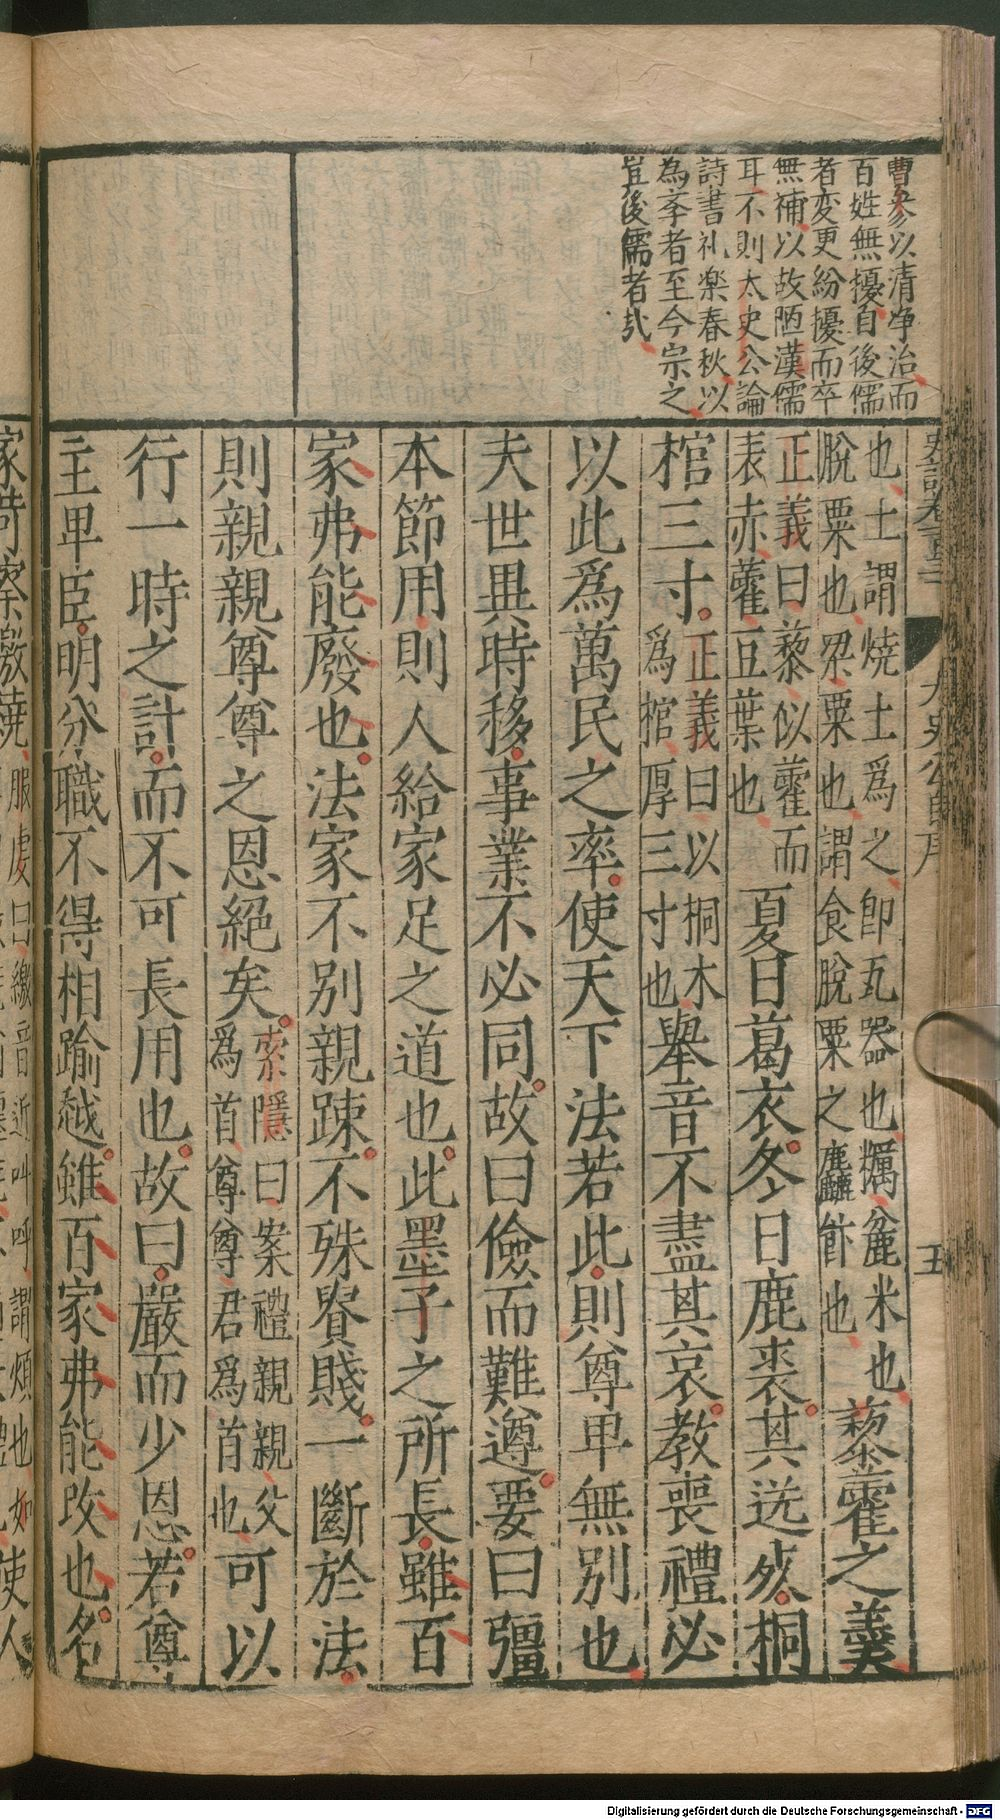 曹参以清净治而
百姓無擾自後儒
者変更紛擾而卒
無補以故陋漢儒
耳不則太史公論
詩書礼楽春秋以
為孝者至今宗之
豈後儒者㢤
也土謂燒土爲之卽瓦器也糲麄米也
脫粟也梁粟也謂食脫粟之麤飰也
藜藿之羹
正義曰藜似藿而
表赤藿豆葉也
夏日葛衣冬日鹿裘其送死桐
棺三寸
正義曰以桐木
爲棺厚三寸也
舉音不盡其哀教喪禮必
以此爲萬民之率使天下法若此則尊卑無別也
夫世異時移事業不必同故曰儉而難遵要曰彊
本節用則人給家足之道也此墨子之所長雖百
家弗能廢也法家不別親踈不殊貴賤一斷於法
則親親尊尊之恩絕矣
索隱曰案禮親親父
爲首尊尊君爲首也
可以
行一時之計而不可長用也故曰嚴而少恩若尊
主卑臣明分職不得相踰越雖百家弗能改也名
家苛察繳繞
服虔曰繳音近叫呼謂煩也如
使人
太史公自序
五
Digitalisierung gefördert durch die Deutsche Forschungsgemeinschaft - DFG